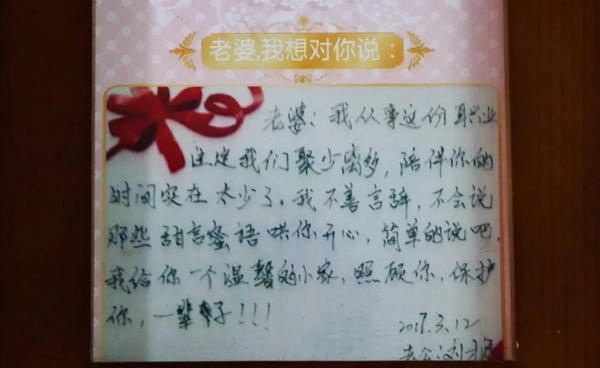 老婆,我想对你说:
老婆:我从事这份职业
注定我们聚少离多,陪伴你的
时间实在太少了。我不善言辞,不会说
那些甜言蜜语哄你开心,简单的说吧,
我给你一个温馨的小家,照顾你,保护
你,一辈子!!!
2017.3.12
老公:刘